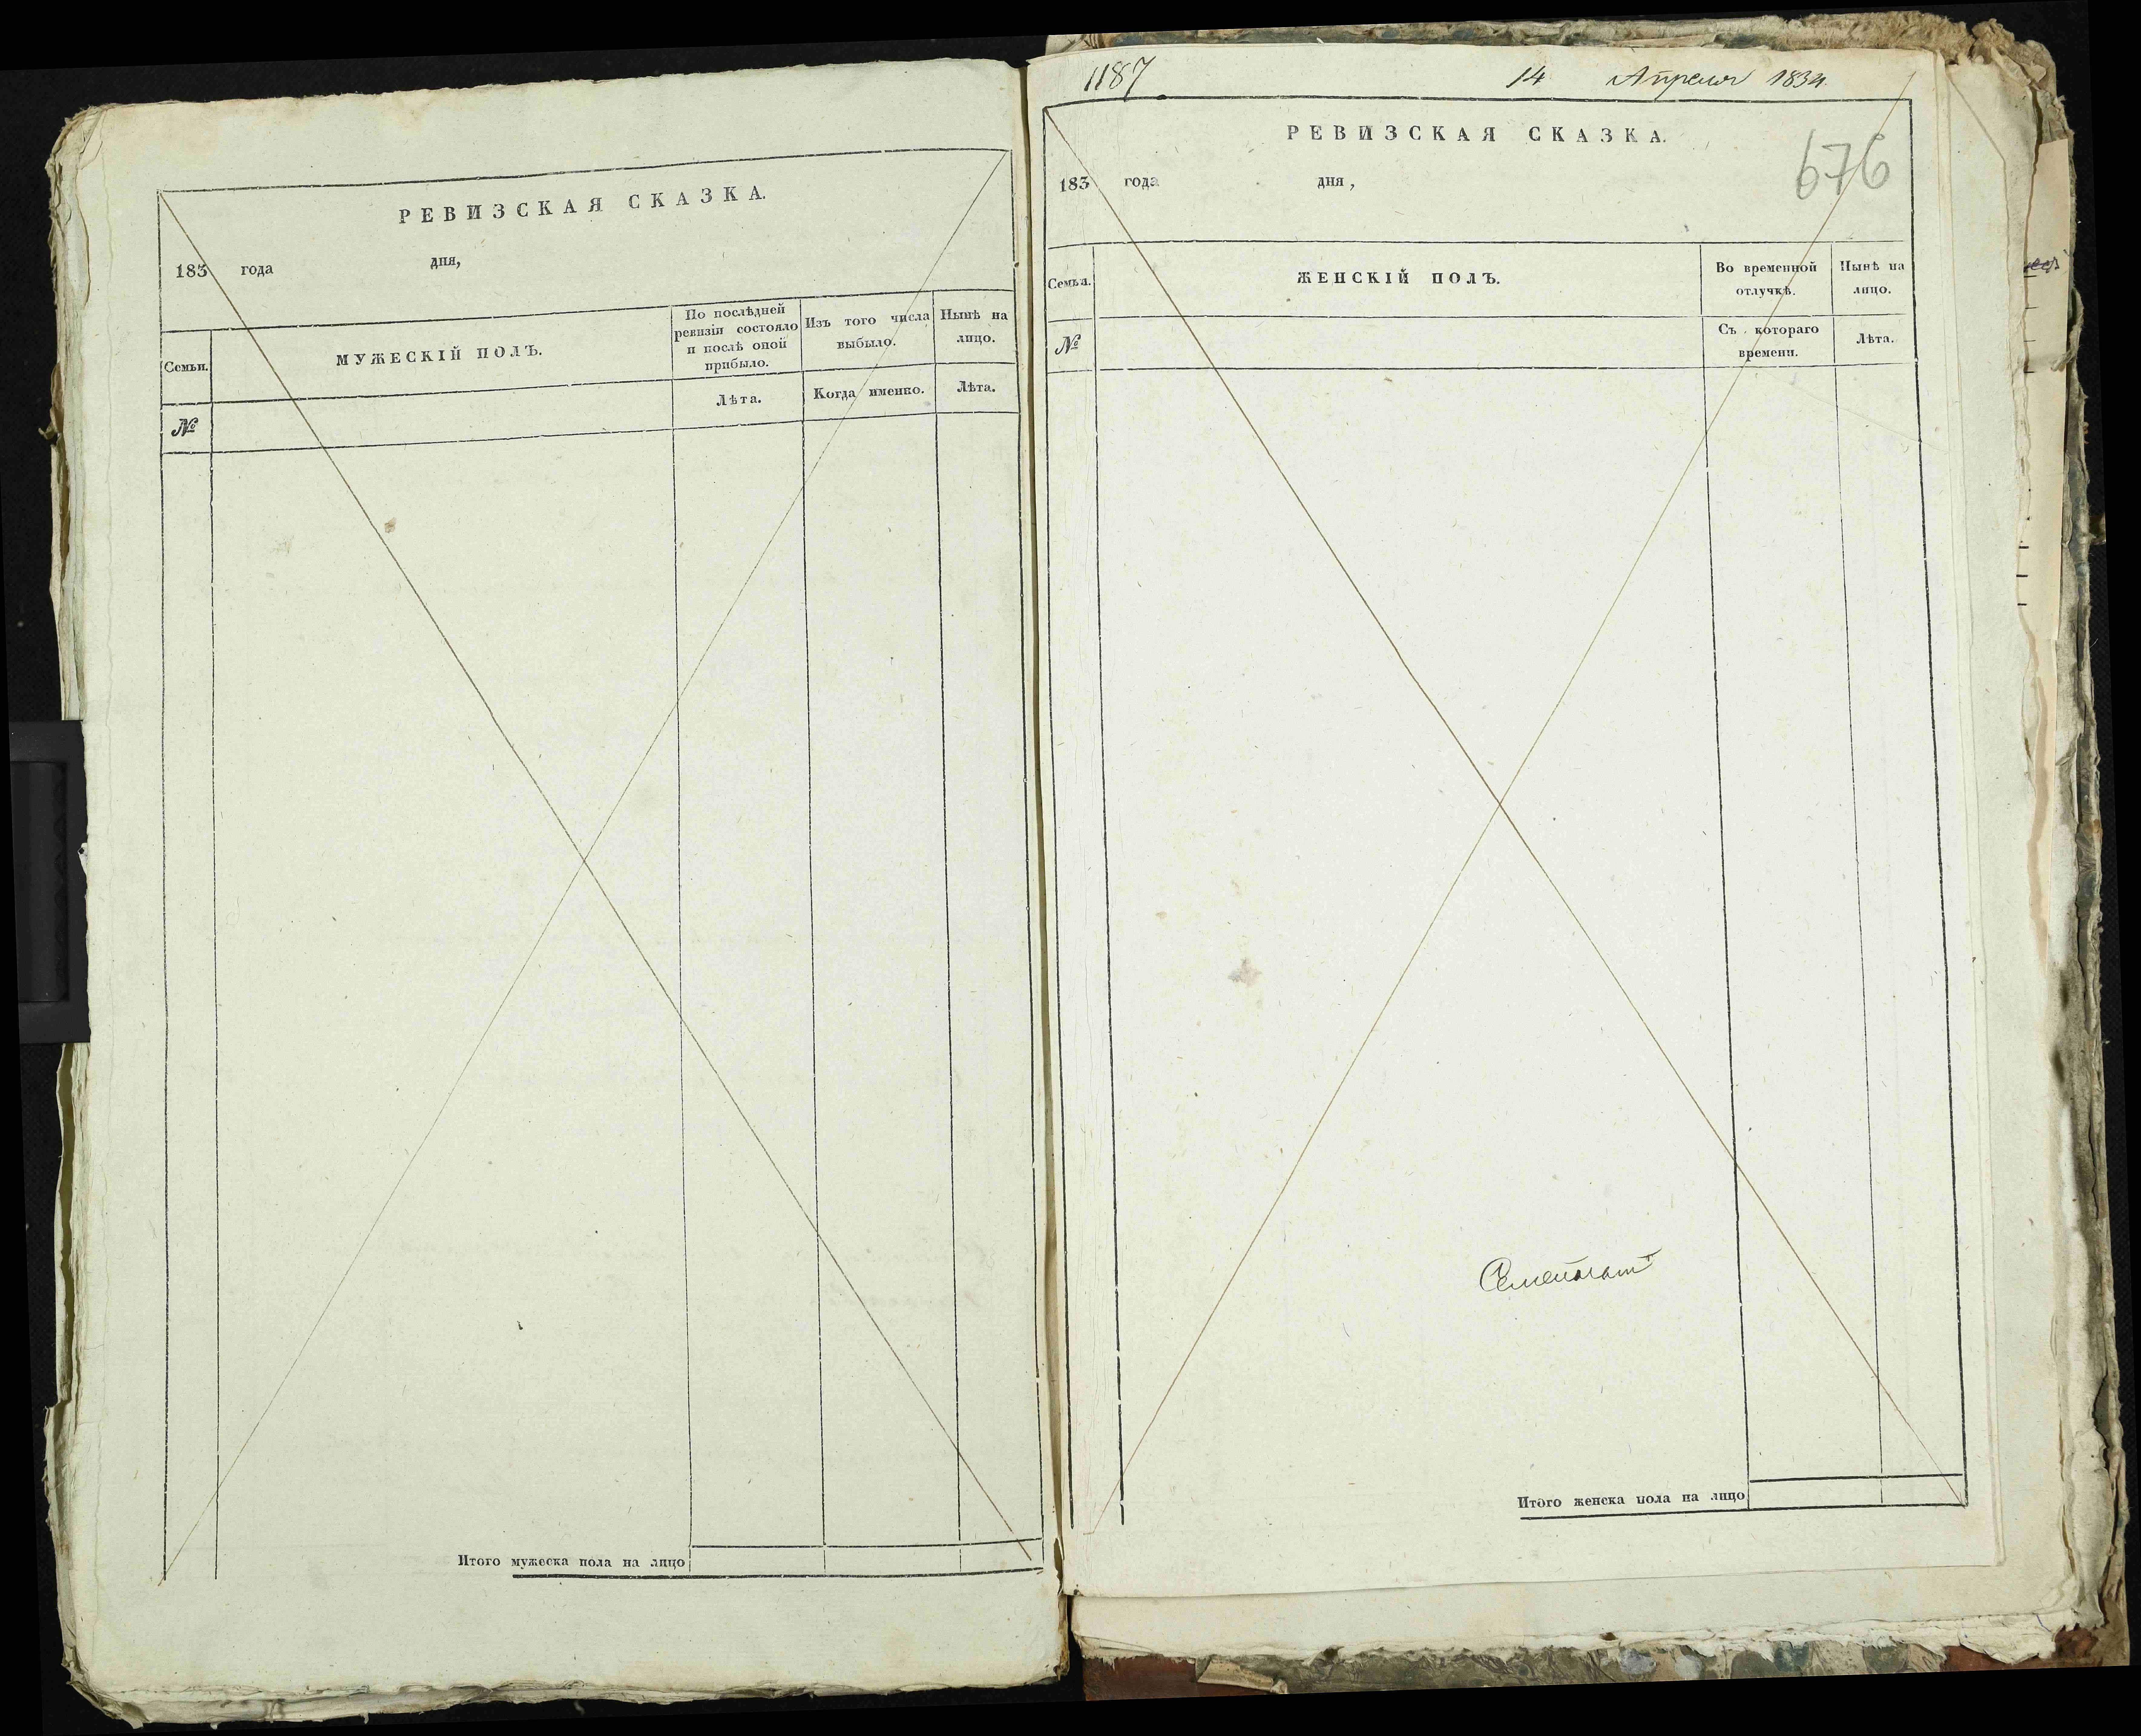 РЕВИЗСКАЯ СКАЗКА.
183 года дня,
Семьи.
МУЖЕСКІЙ ПОЛЪ.
По послѣдней
ревизіи состояло
и послѣ оной
прибыло.
Изъ того числа
выбыло.
Нынѣ на
лицо.
№
Лѣта.
Когда именно.
Лѣта.
Итого мужеска пола на лицо
1187 14 Апреля 1834
РЕВИЗСКАЯ СКАЗКА.
676
183 года дня,
Семьи.
ЖЕНСКІЙ ПОЛЪ.
Во временной
отлучкѣ.
Нынѣ на
лицо.
№
Съ котораго
времени.
Лѣта.
Итого женска пола на лицо